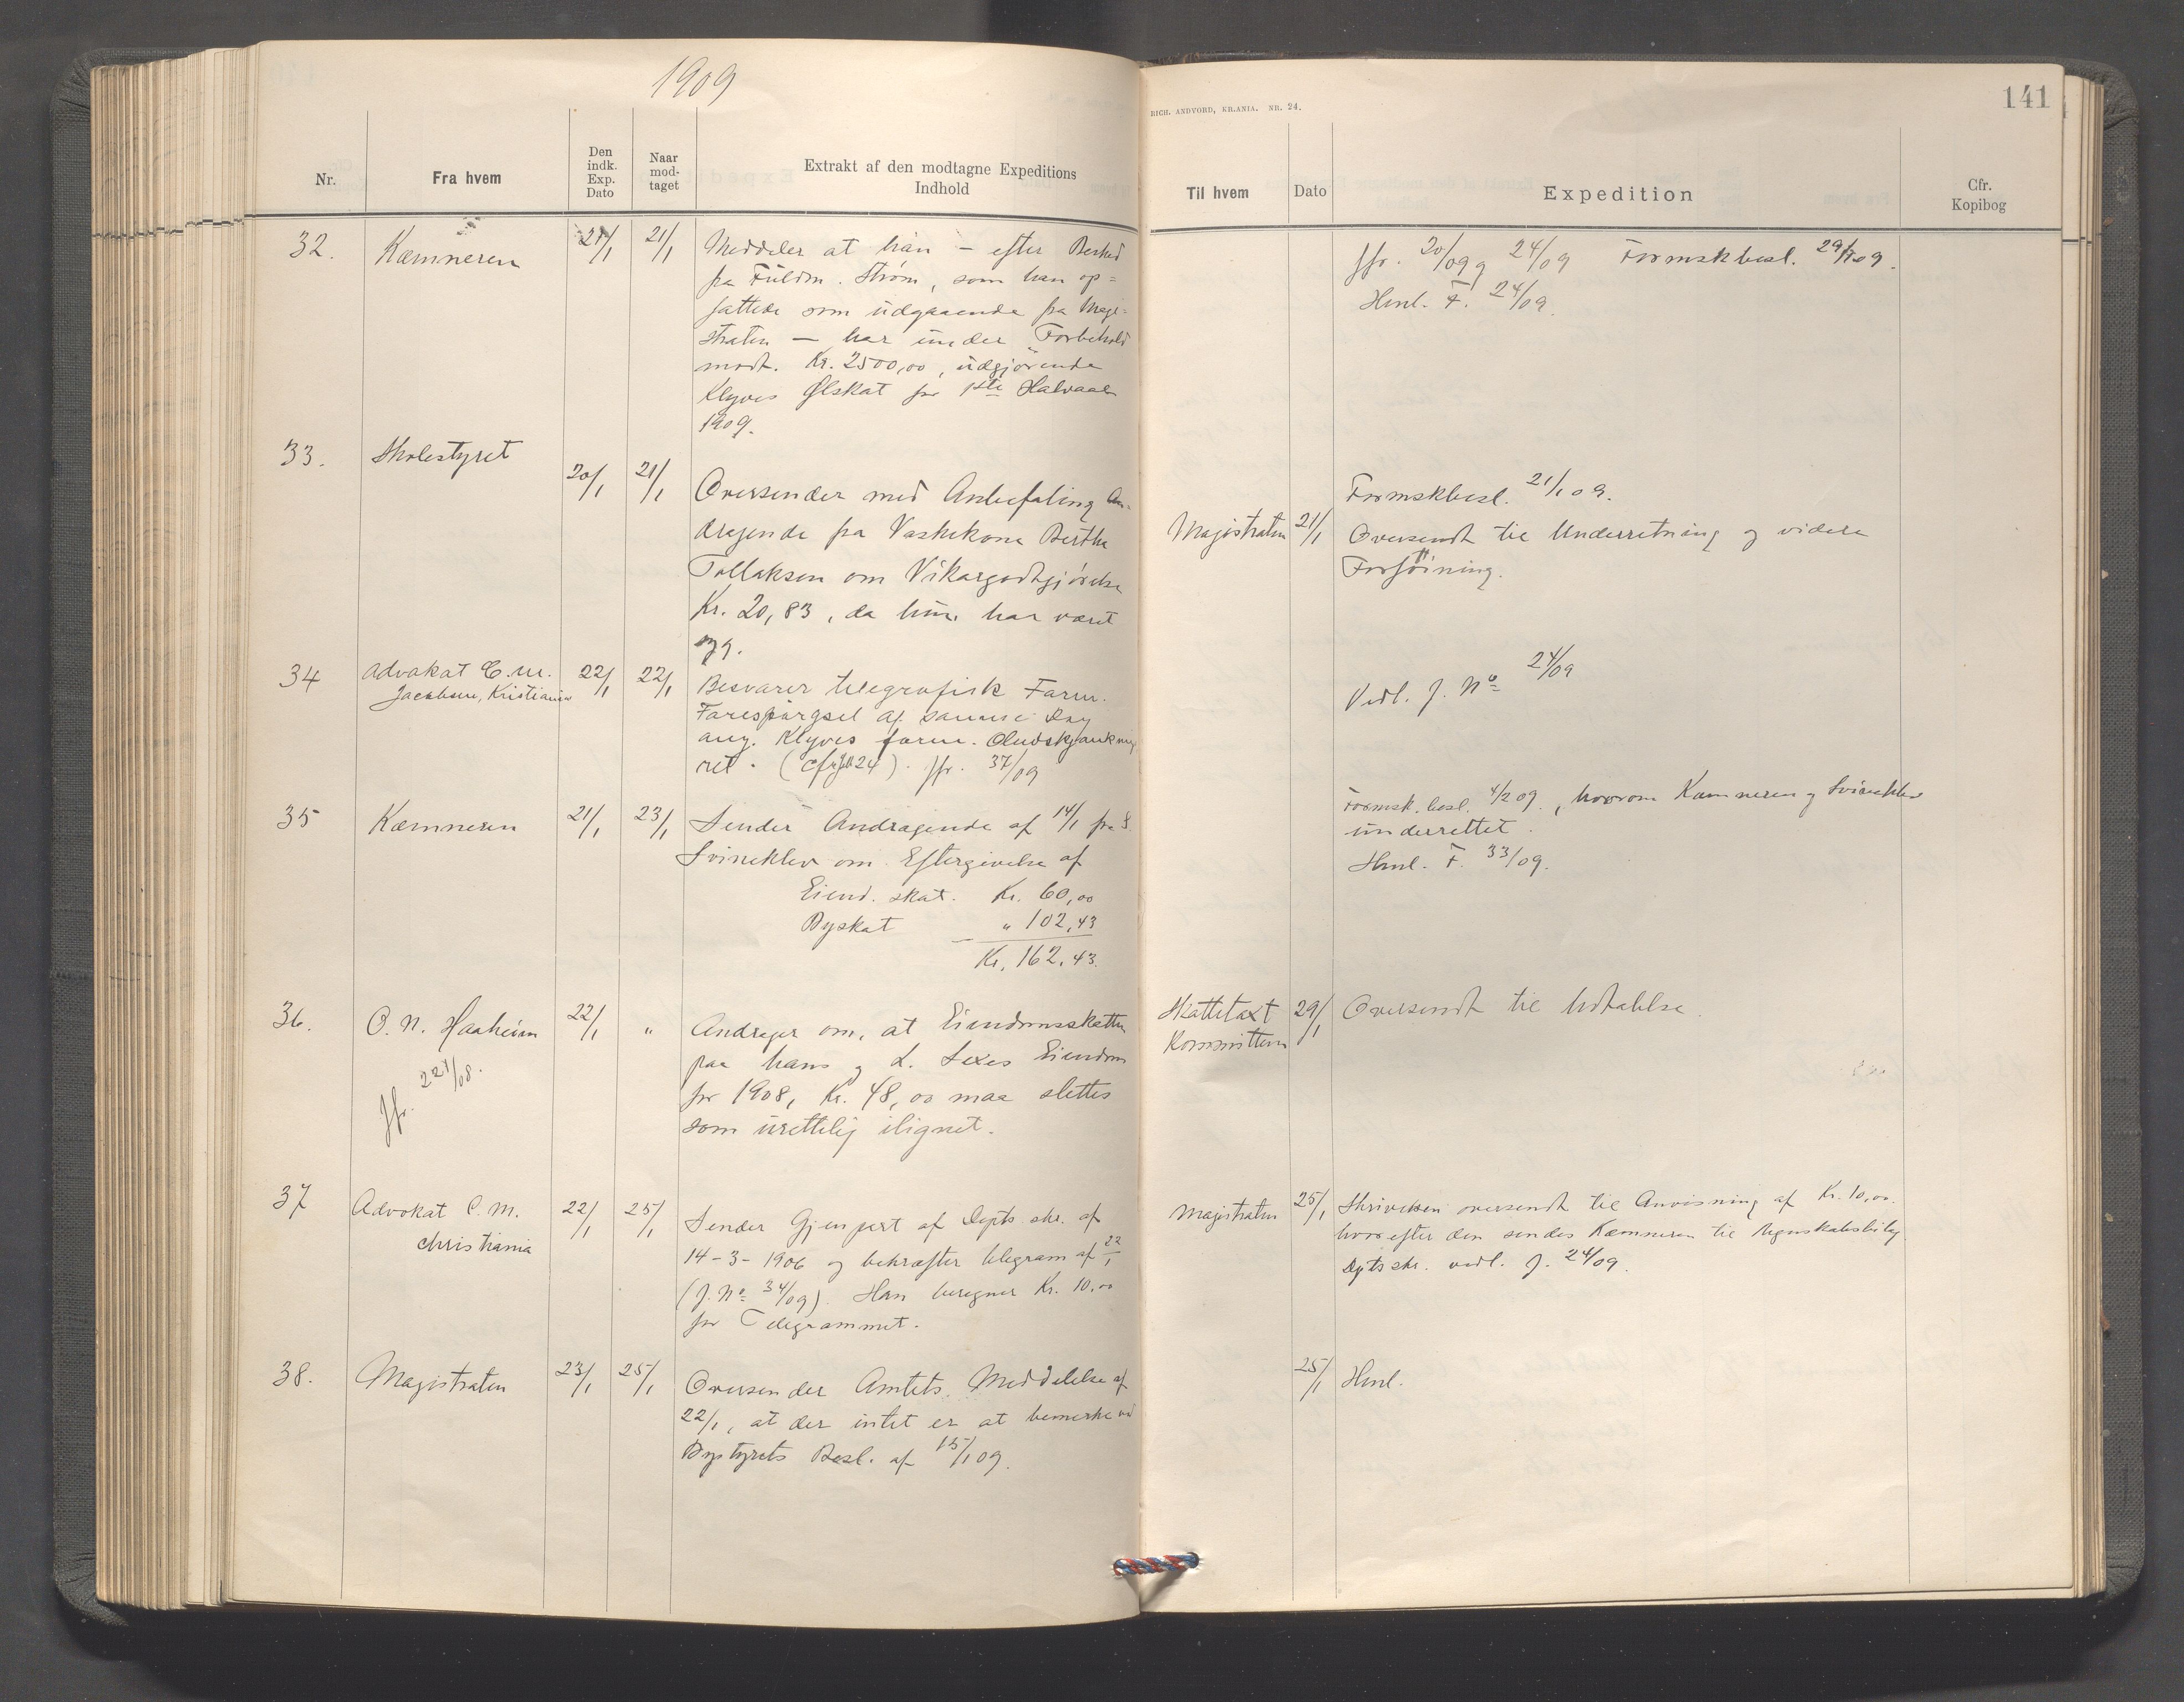 1909
Nr.
Fra hvem
Den indk. Exp. Dato
Naar mod- taget
Extrakt af den modtagne Expeditions Indhold
32.
Kæmneren
21/1
21/1
Meddeler at han – efter Besked
fra Fuldm. Strøm, som han op=
fattede som udgaaende fra Magi=
straten – har under Forbehold
modt. Kr. 2500,00, udgjörende
Klyves Ølskat for 1ste Halvaar
1909.
33.
Skolestyret
20/1
21/1
Oversender med Anbefaling An-
dragende fra Vaskekone Berthe
Tollaksen om Vikargodtgjörelse
Kr. 20,83, da hun har været
syg.
34
Advokat C. M.
Jacobsen, Kristiania
22/1
22/1
Besvarer telegrafisk Form.
Forespørgsel af samme Dag
ang. Klyves form. Øludskjænkning
ret. (cfr. 24). Jfr. 37/09
35
Kæmneren
21/1
23/1
Sender Andragende af 14/1 fra S.
Svineklev om Eftergivelse af
Eiend. skat. Kr. 60,00
Byskat " 102,43
Kr. 162,43.
36.
O. N. Haaheim
Jfr. 221/08.
22/1
"
Andrager om, at Eiendomsskatten
paa hans og L. Sexes Eiendom
for 1908, Kr. 48,00 maa slettes
som urettelig ilignet.
37
Advokat C. M.
Christiania
22/1
25/1
Sender Gjenpart af Depts. skr. af
14-3-1906 og bekræfter telegram af 22/1
(J. No 34/09). Han beregner Kr. 10,00
for Telegrammet.
38.
Magistraten
23/1
25/1
Oversender Amtets Meddelelse af
22/1, at der intet er at bemerke ved
Bystyrets Besl. af 15/1 09.
RICH. ANDVORD, KR.ANIA. NR. 24.
141
Til hvem
Dato
Expedition
Cfr. Kopibog
Jfr. 20/09 og 24/09 Formskbesl. 29/1 09.
Henl. F. 24/09.
Formskbesl. 21/1 09.
Magistraten
21/1
Oversendt til Underretning og videre
Forföining.
Vedl. J. No 24/09
Formsk. besl. 4/2 09., hvorom Kæmneren og Svineklev
underrettet.
Henl. F. 33/09.
Skattetaxt
Kommitteen
29/1
Oversendt til Udtalelse.
Magistraten
25/1
Skrivelsen oversendt til Anvisning af Kr. 10,00.
hvorefter den sendes Kæmneren til Regnskabsbilag
Dpts skr. vedl. J. 24/09.
25/1
Henl.